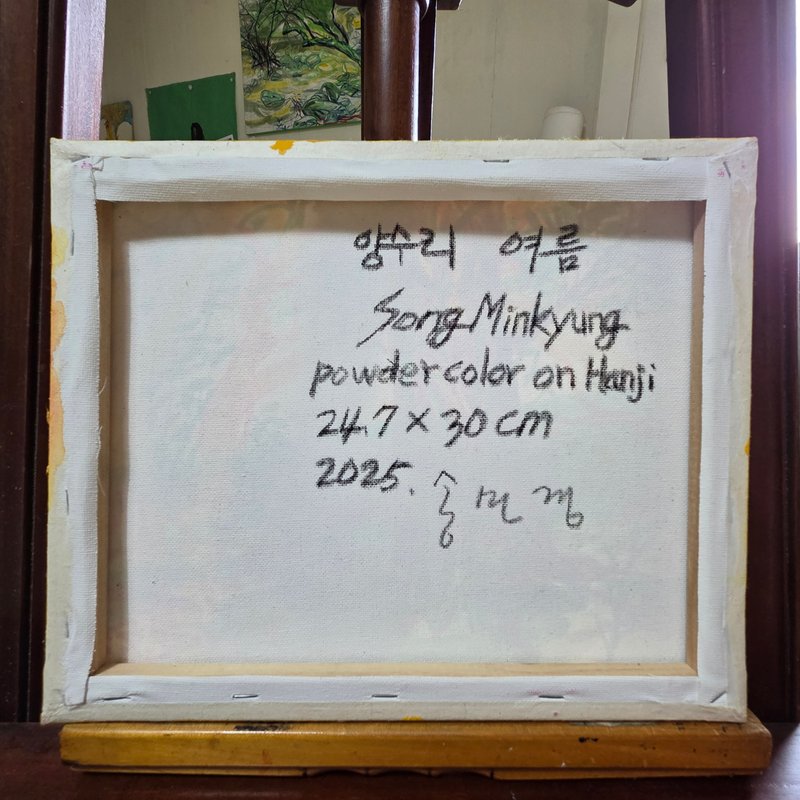 양수리 여름
Song Minkyung
powder color on Hanji
24.7 × 30 cm
2025. 송민경